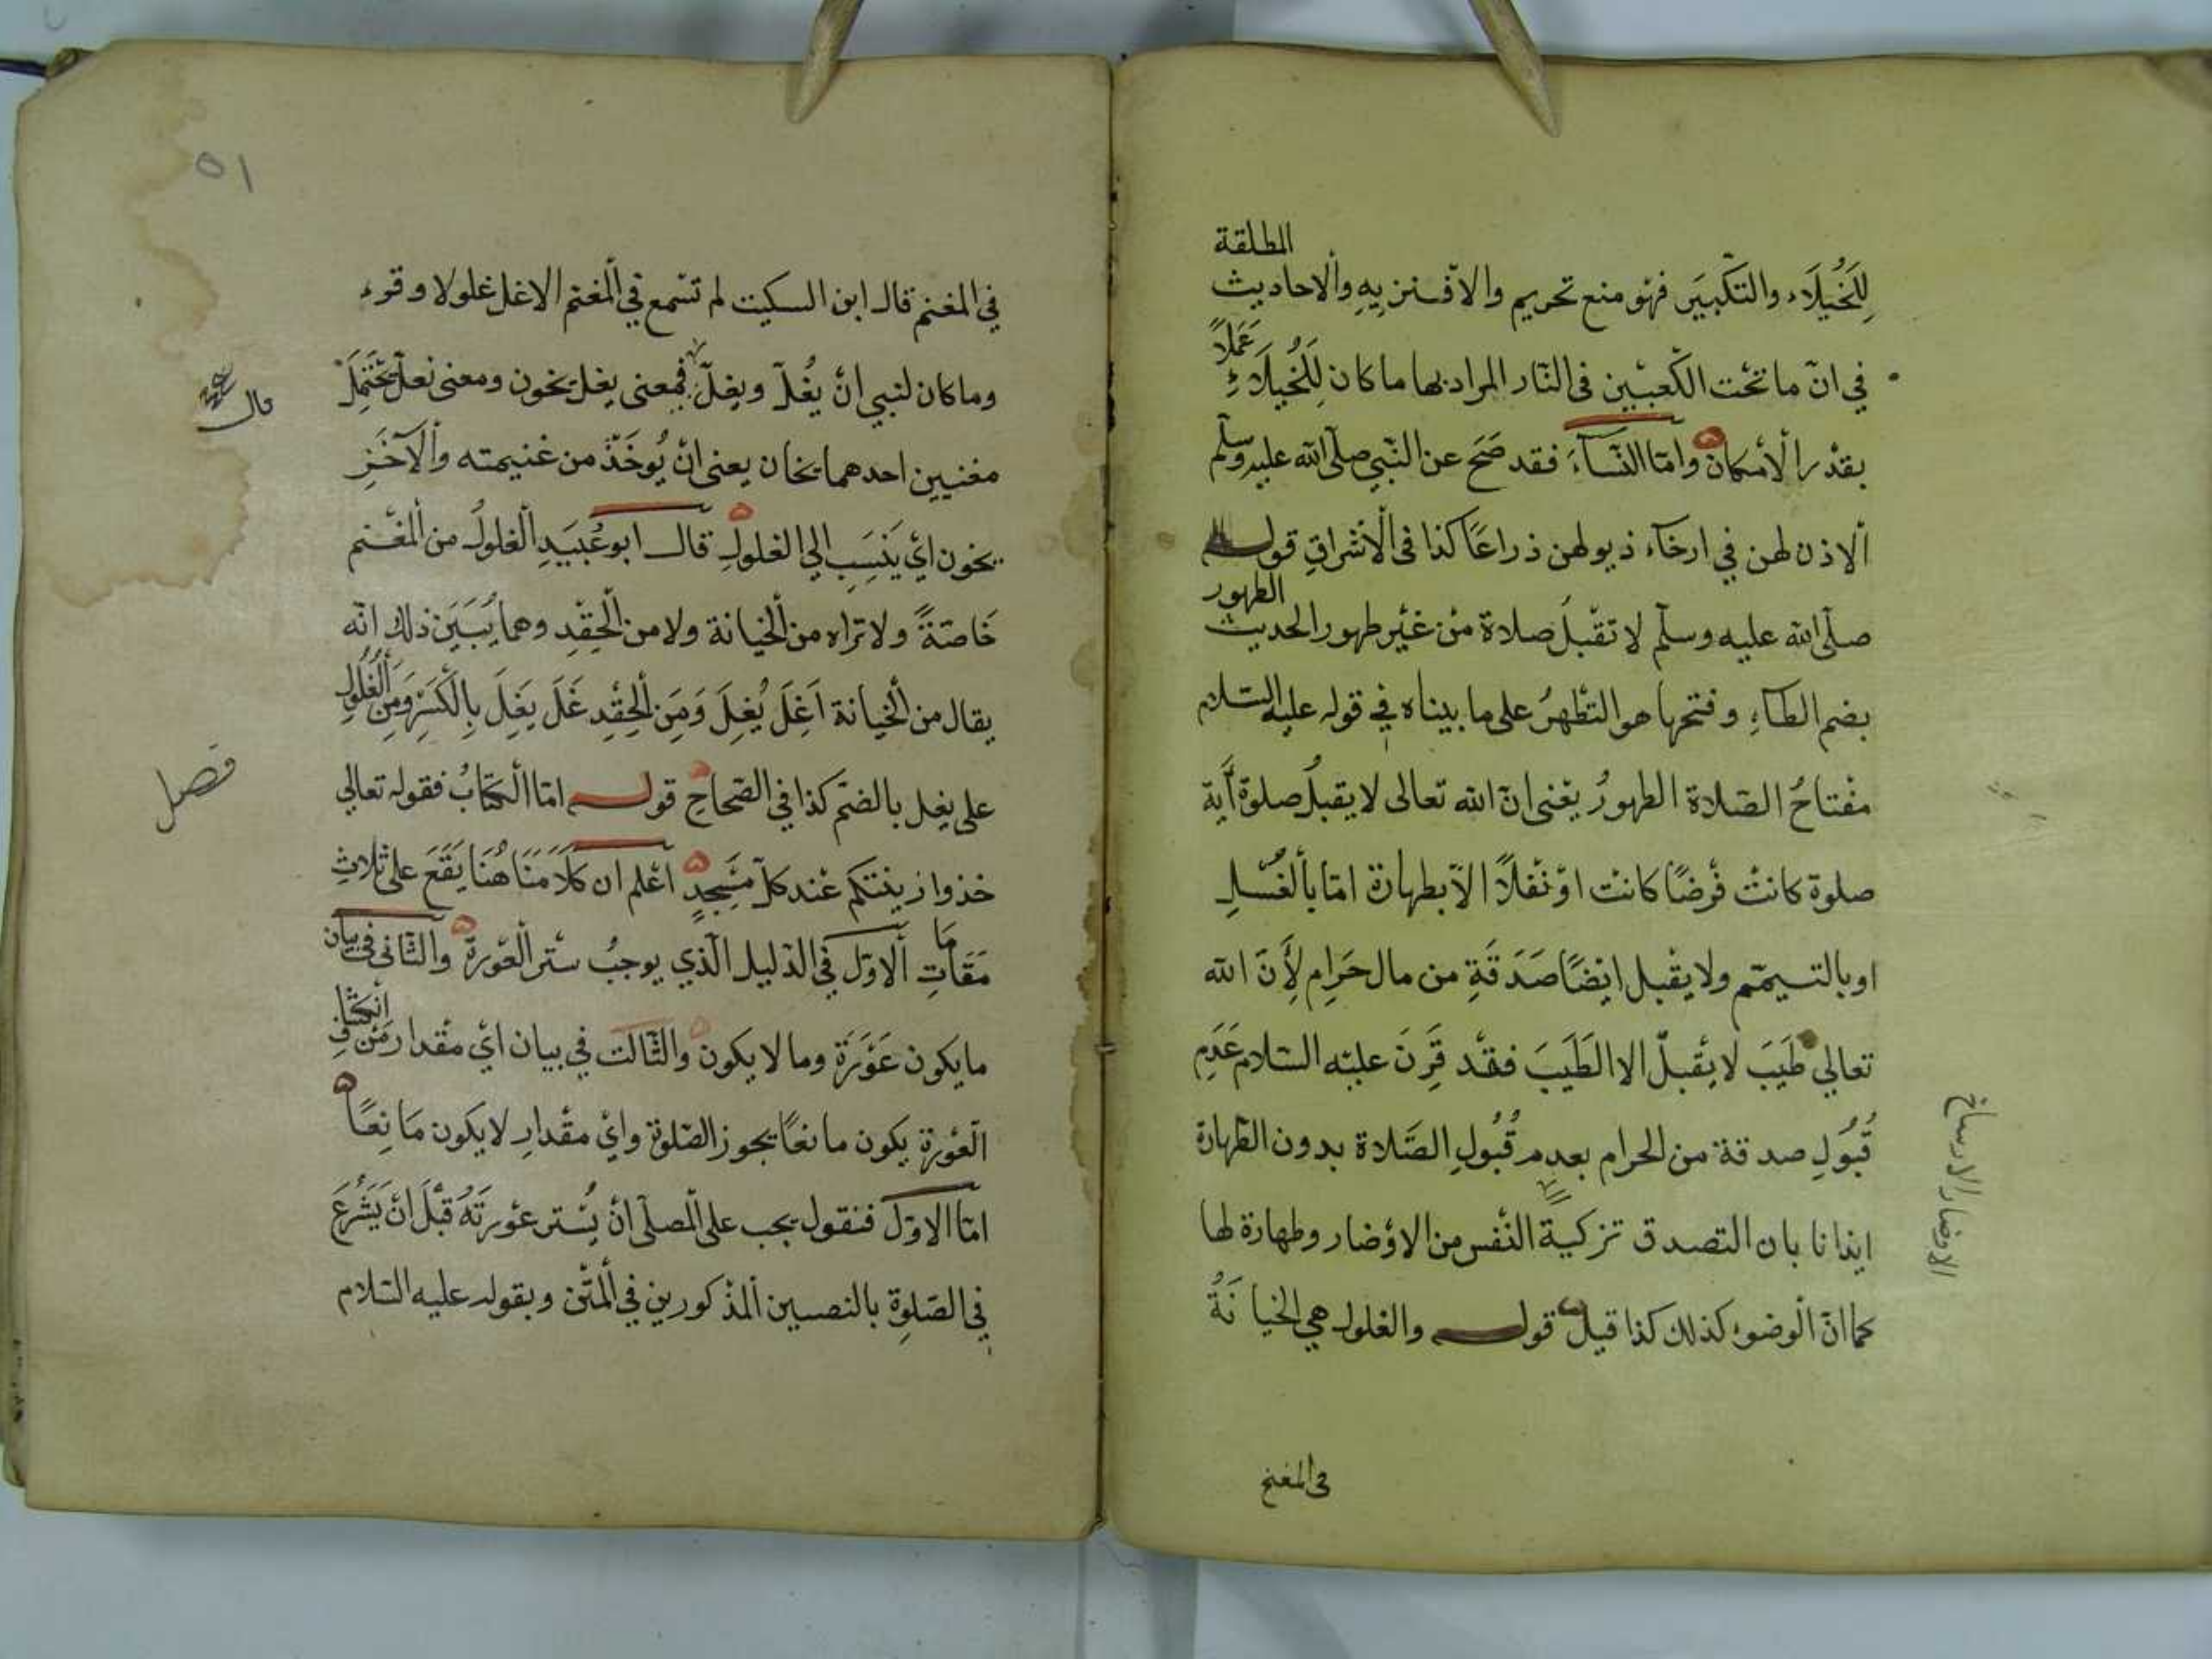 المطلقة
لِلخُيَلَاء والتكبير فهو منع تحريم والا فتنزيه والاحاديث
في انّ ما تحْت الكَعبيْن فى النّار المراد بها ما كان لِلخُيَلاءِ عَمَلاً
بقدْر الْامكان وامّا النّسآء فقد صَحَ عن النّبي صلّى الله عليه وسلّم
ألاذن لهن في ارخآء ذيولهن ذراعًا كذا فى الْاشراق قولـه
صلّى الله عليه وسلّم لا تقْبلُ صلاة منْ غيْر طهور الحديث الطهور
بضم الطآءِ وفتحها هو التطْهرُ على ما بيناه في قوله عليه السّلام
مفْتاحُ الصّلاة الطهورُ يعْنى انّ الله تعالى لا يقبلُ صلوة آية
صلوة كانتْ فرْضًا كانت اوْ نفْلاً الّا بطهارة امّا بالْغسْلِ
او بالتيمّم ولا يقْبل ايْضًا صَدَقَةٍ من مال حَرامٍ لأَنّ الله
تعالي طَيبَ لا يقْبلّ الا الطَيبَ فقدْ قَرنَ عليْه السّلام عَدَمِ
قُبُولِ صدقة من الحرام بعدم قُبُولِ الصَّلاة بدون الطّهارة
ايذانا بان التصدق تزكيةُ النّفس من الاوْضار وطهارة لها
كما انّ الْوضوء كذلك كذا قيل قولـه والغلول هي الخيانَةُ
فى المغنم
الاوضار الاوساخ
٥١
في المغنم قال ابن السكيت لم تسْمع في الْمغنم الا غل غلولا وقوء
وما كان لنبي انْ يُغلّ ويغِلّ فمعنى يغل يخون ومعنى نعلّ يحْتَمِلَ
مغنيين احدهما يخان يعنى انْ يُوخَذّ من غنيمته والْآخَرِ
يخون ايْ ينْسَب الي الغلولِ قال ابو عُبَيدِ الْغلولُ من الْمغْنم
خَاصّةً ولا تراه من الْخيانة ولا من الْحِقْدِ وهما يُبَيَن ذلك انّه
يقال من الْخيانة اَغَلَ يُغِلَ وَمِنَ الْحِقْدِ غَلَ يَغِلَ بِالْكَسْرِ وَمِنَ الْغُلُولِ
على يغل بالضمّ كذا في الصّحاحِ قولـه امّا الْكتابُ فقوله تعالي
خذوا زينتكم عنْد كلّ مسْجدٍ اعْلم ان كلَاَمَنَا هُنَا يَقَعَ على ثلاثِ
مَقَامَاتِ ألاوّل في الدّليل الّذي يوجبُ ستر الْعوْرة والثّانى فى بيان
ما يكون عَوْرَة وما لا يكون والثّالث في بيان ايْ مقْدار منْ انْكشافِ
الْعوْرة يكون مانعًا يجوز الصّلوة وايْ مقْدارِ لا يكون مَانِعًا
امّا الاوّل فنقول يجب على الْمصلّى انْ يُسْتر عوْرتَهُ قبْلَ انْ يَشْرُعَ
في الصّلوة بالنصين الْمذْكورين في الْمتْن وبقوله عليه السّلام
قال
فصل